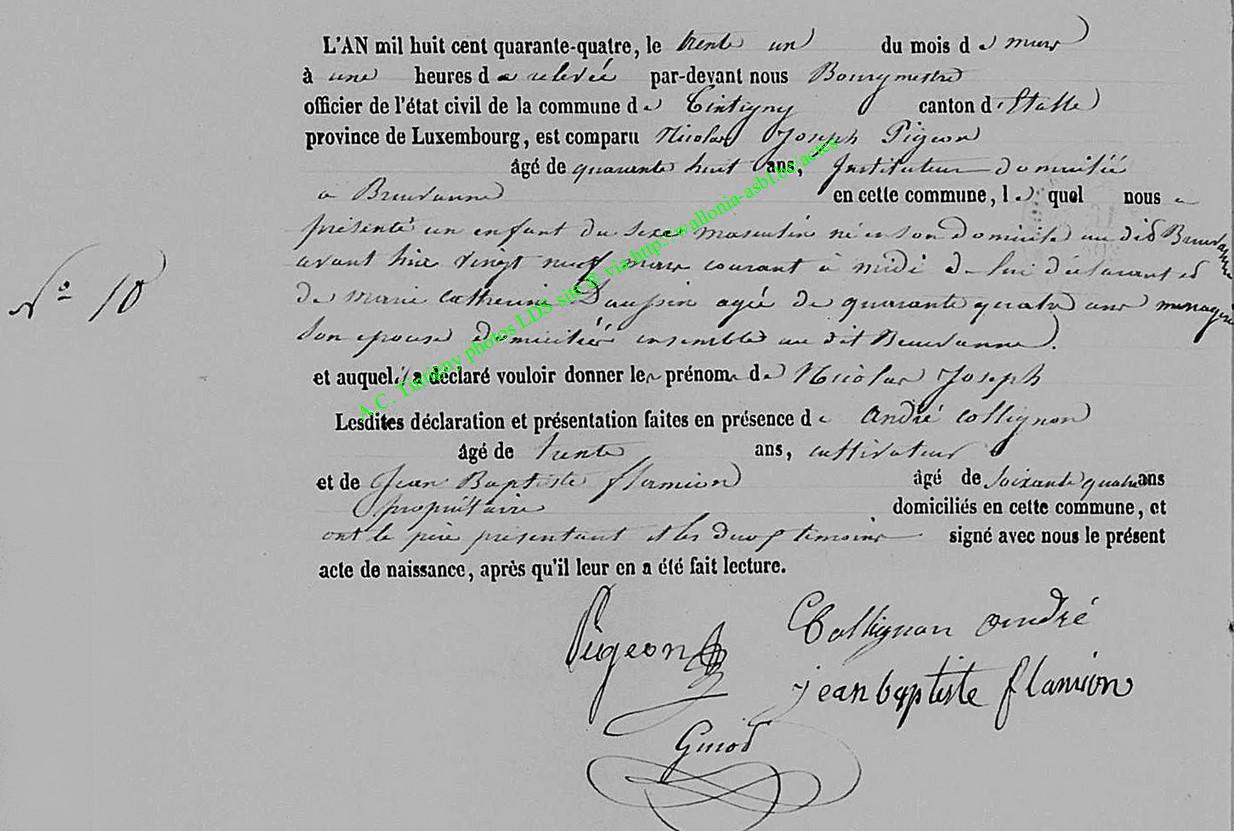 L'AN mil huit cent quarante-quatre, le trente un du mois de mars
à une heures de relevée par-devant nous Bourgmestre
officier de l'état civil de la commune de Tintigny canton d'Etalle
province de Luxembourg, est comparu Nicolas Joseph Pigeon
âgé de quarante huit ans, Instituteur domicilié
a Breuvanne en cette commune, le quel nous a
présenté un enfant du sexe masculin né en son domicile au dit Breuvanne
avant hier vingt neuf mars courant à midi de lui déclarant et
de marie catherine agée de quarante quatre ans menagère
son epouse domiciliés ensemble au dit Breuvanne.
et auquel il a déclaré vouloir donner les prénoms de Nicolas Joseph
Lesdites déclaration et présentation faites en présence de andré collignon
âgé de trente ans, cultivateur
et de Jean Baptiste flamion âgé de soixante quatre ans
propriétaire domiciliés en cette commune, et
ont le père présentant et les deux témoins signé avec nous le présent
acte de naissance, après qu'il leur en a été fait lecture.
No 10
Pigeon Collignon andré
jean baptiste flamion
A.C. Tintigny photos LDS site @ via http://wallonia-asbl.be/actes